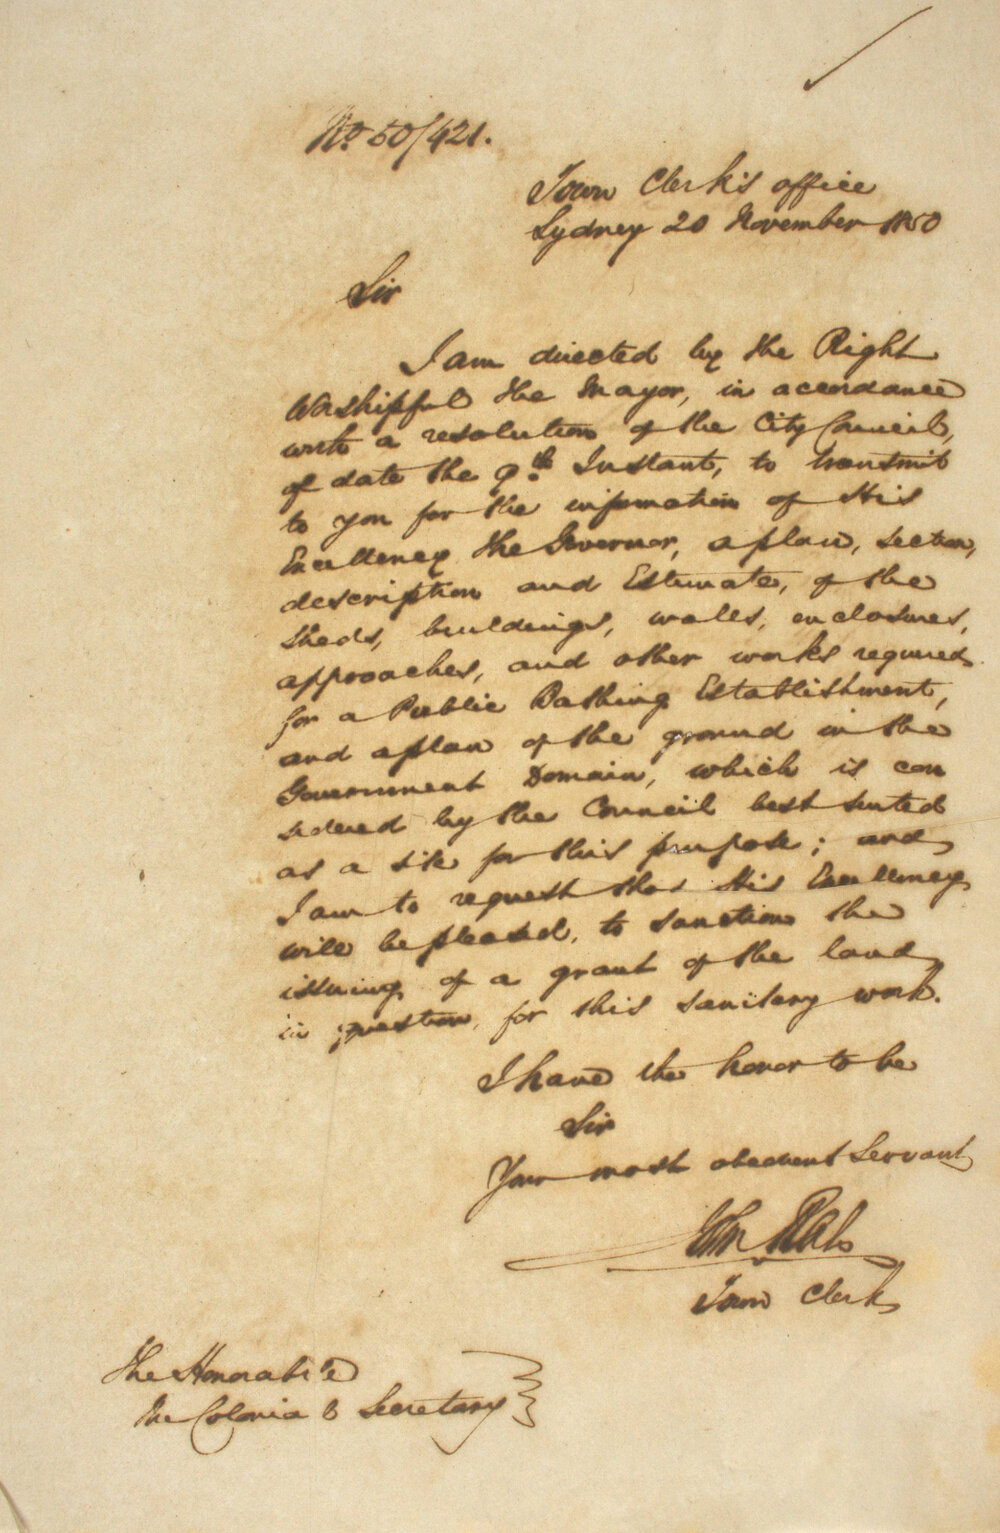 No 50/421.
Town Clerk's office
Sydney 20 November 1850
Sir
I am directed by the Right
Worshipful the Mayor, in accordance
with a resolution of the City Council,
of date the 9th Instant, to transmit
to you for the information of His
Excellency the Governor, a plan, section,
description and Estimate, of the
sheds, buildings, walls, enclosures,
approaches, and other works required
for a Public Bathing Establishment,
and a plan of the ground in the
Government Domain, which is con
sidered by the Council best suited
as a site for this purpose; and
I am to request that His Excellency
will be pleased, to sanction the
issuing of a grant of the land
in question, for this sanitary work.
I have the honor to be
Sir
Your most obedient Servant
John
Town Clerk
The Honorable
The Colonial Secretary